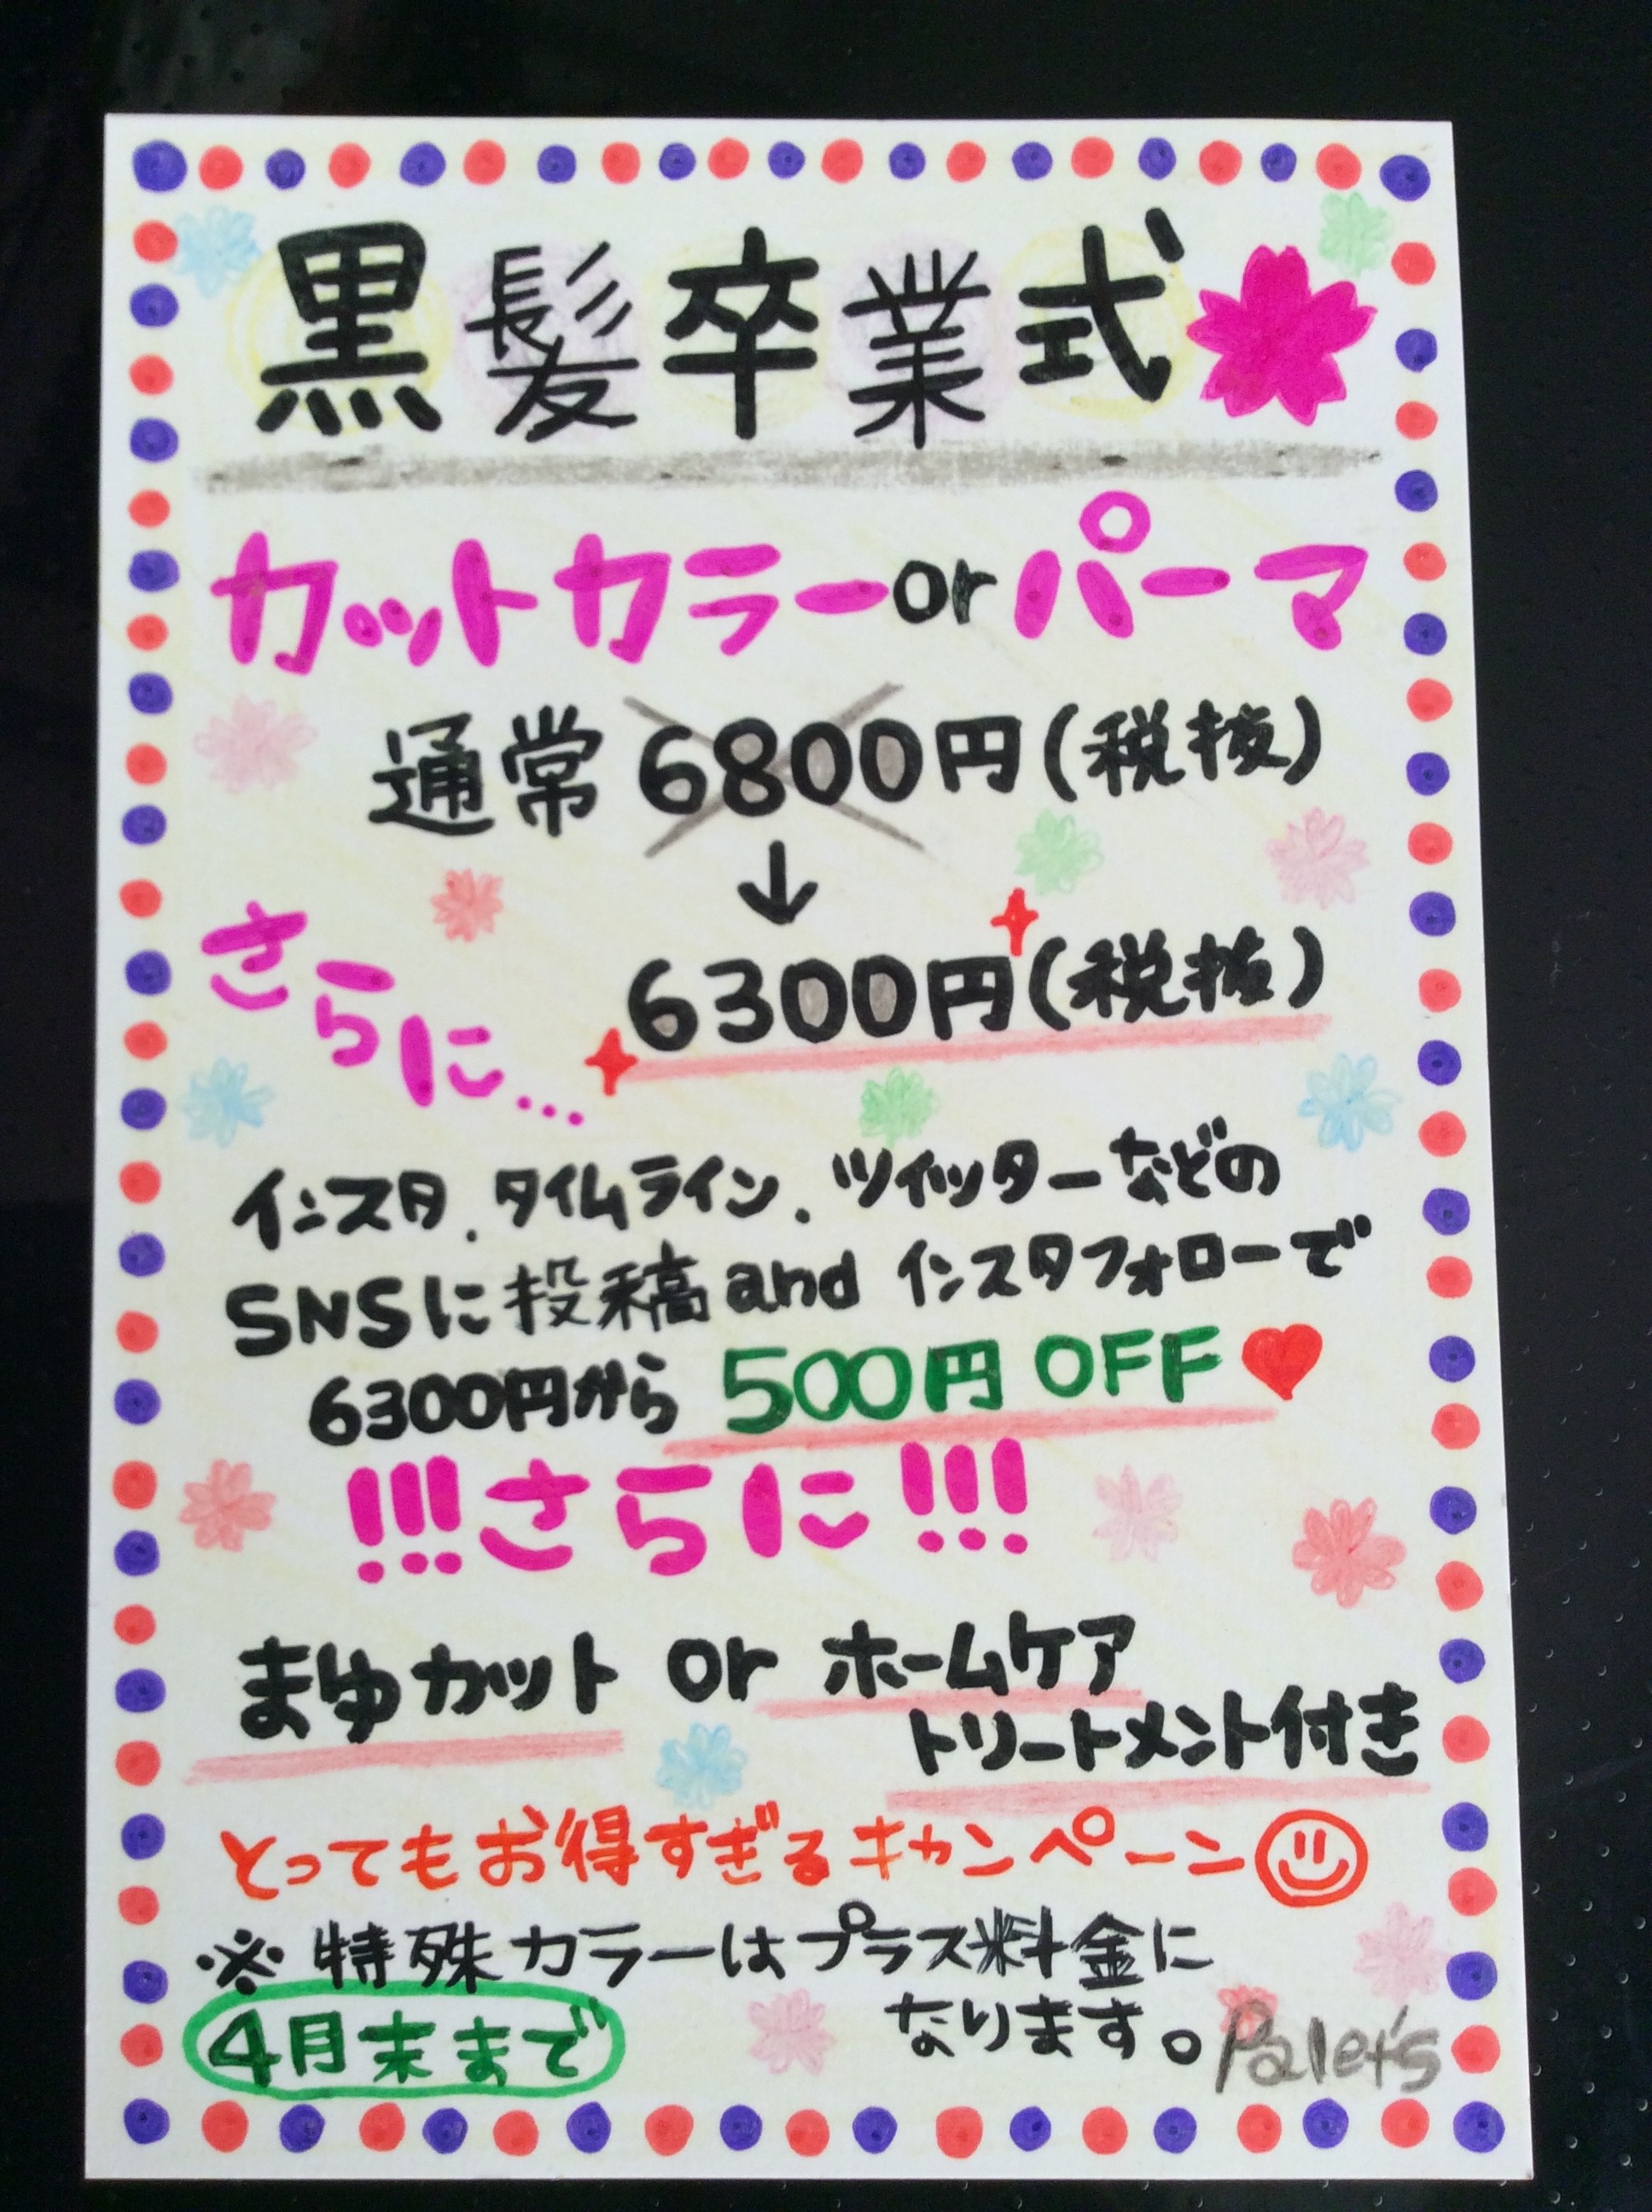 黒髪卒業式
カットカラーorパーマ
通常6800円(税抜)
↓
さらに...
6300円(税抜)
インスタ.タイムライン.ツイッターなどの
SNSに投稿andインスタフォローで
6300円から500円OFF
!!!さらに!!!
まゆカット or ホームケア
トリートメント付き
とってもお得すぎるキャンペーン
※特殊カラーはプラス料金に
なります。
4月末まで
Palet's